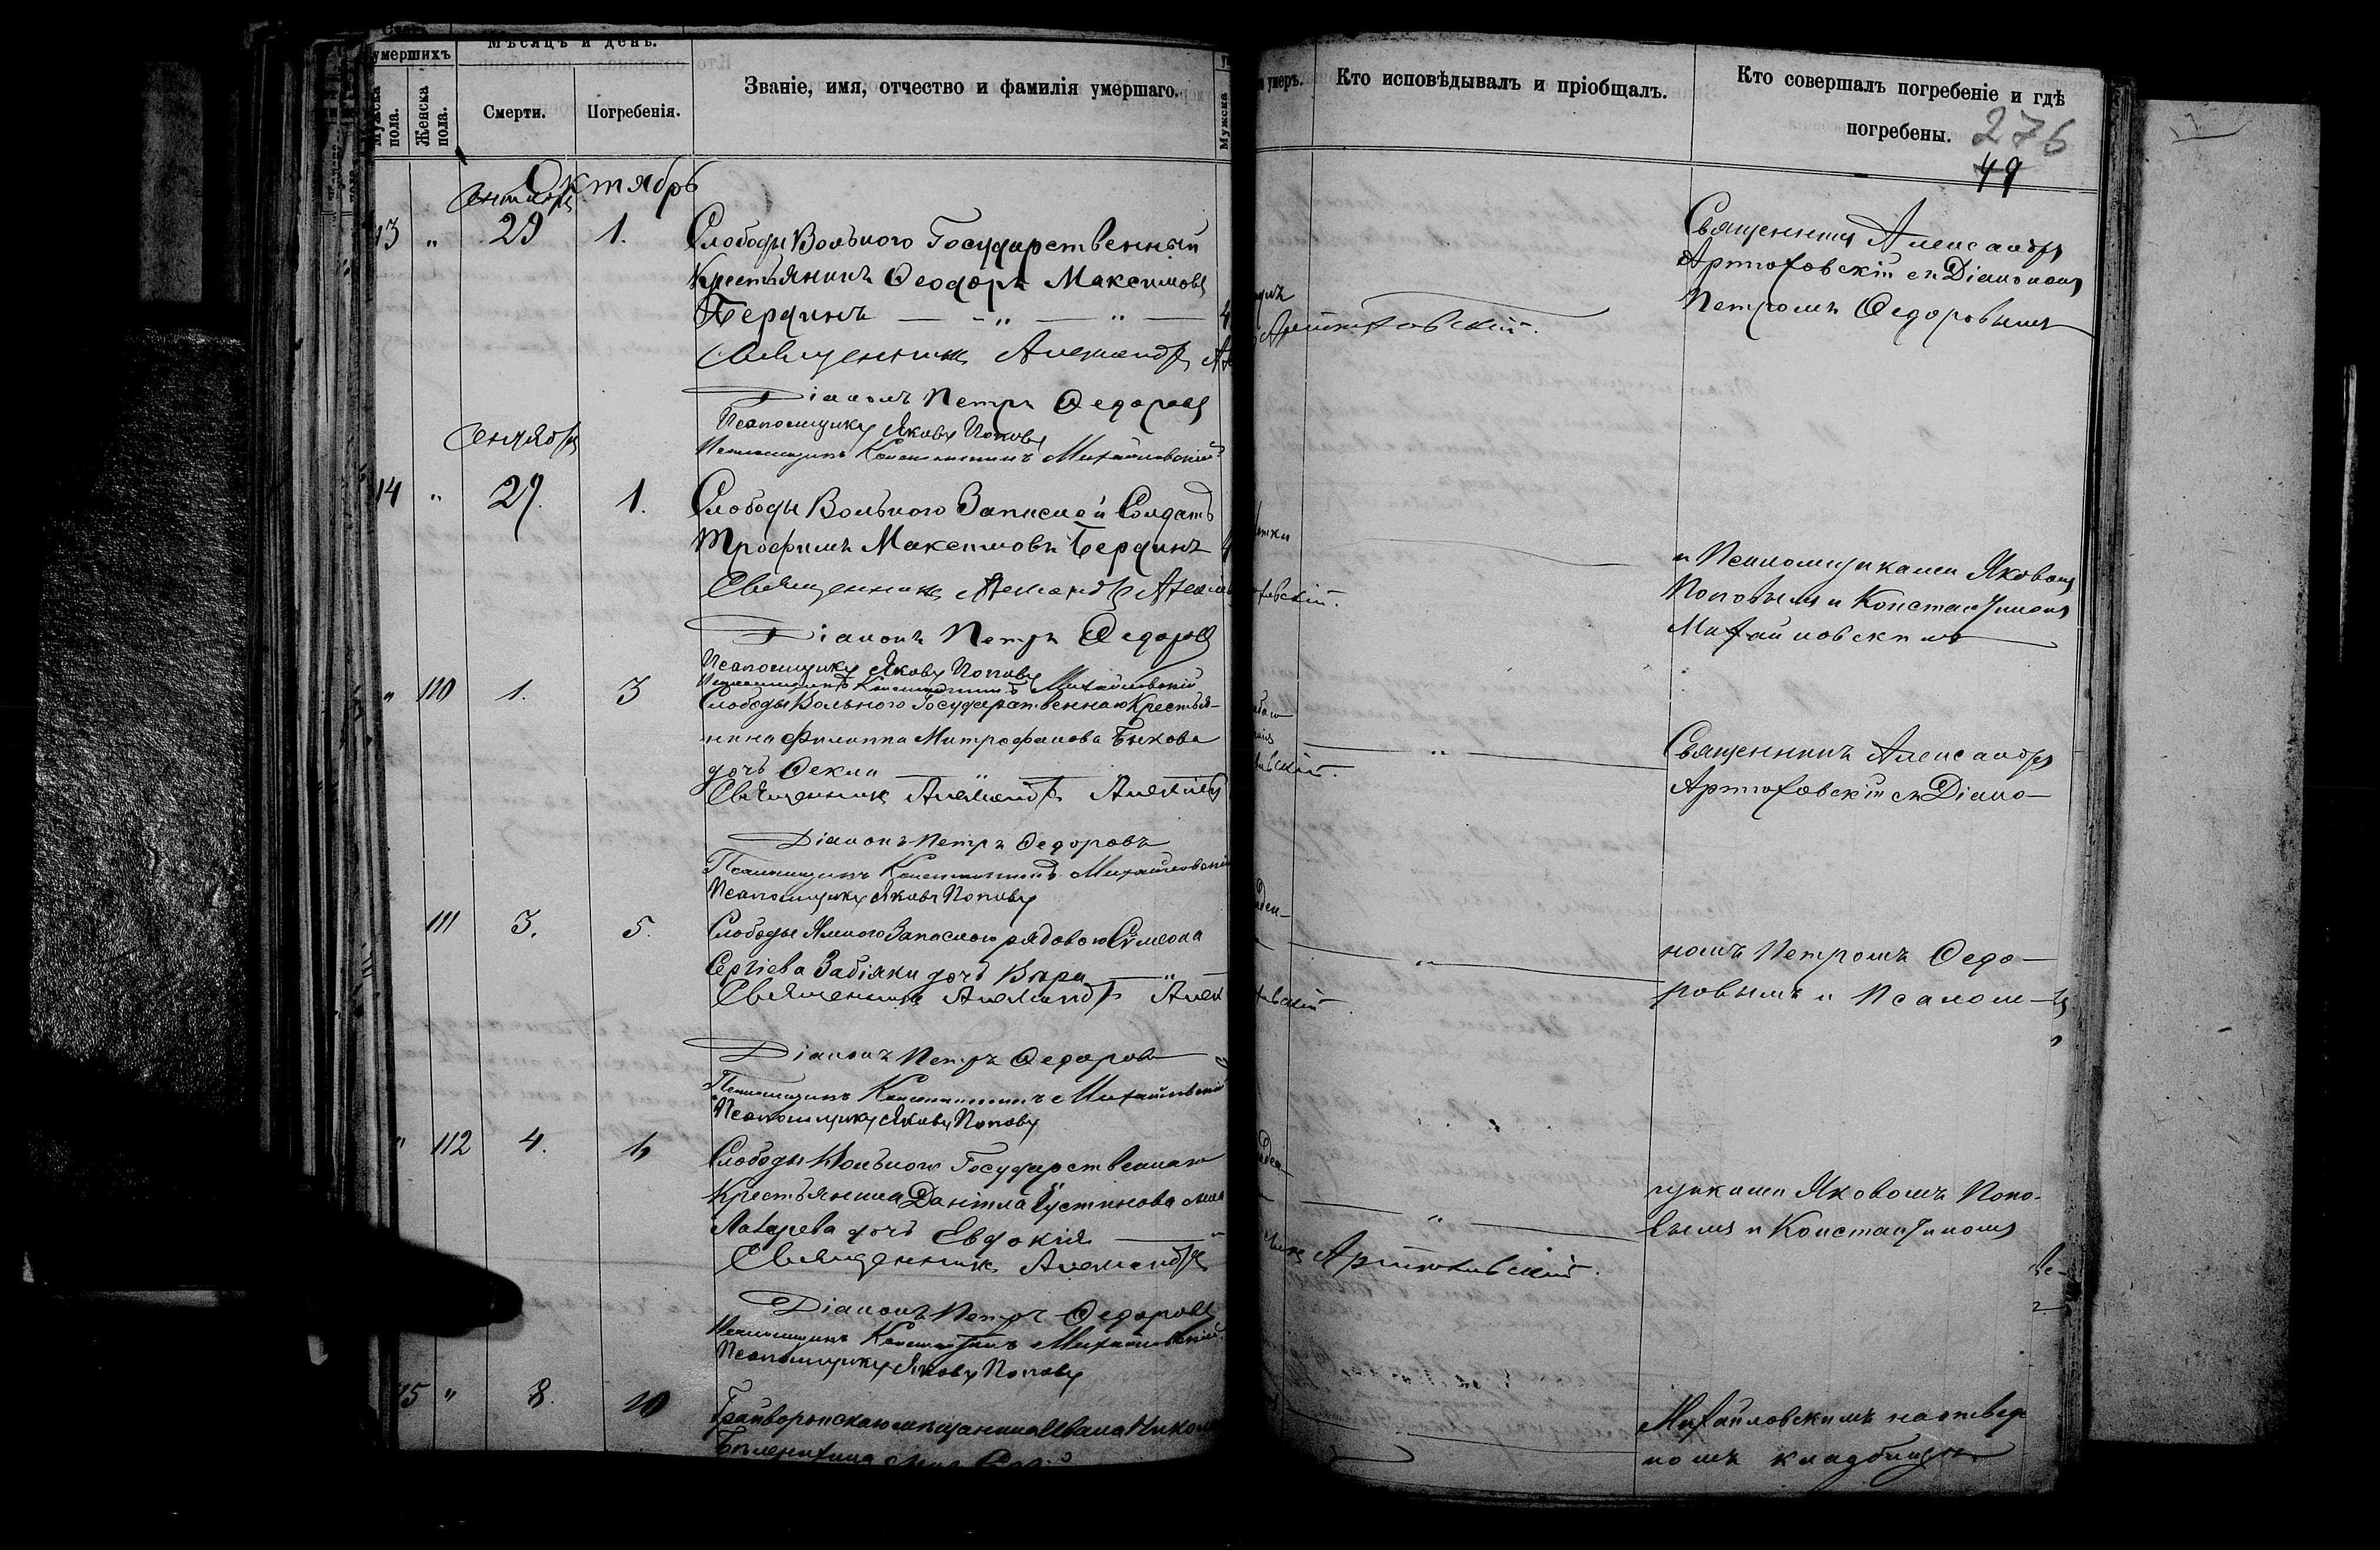 умершихъ
Мѣсяцъ и день.
Мужска пола.
Женска пола.
Смерти.
Погребенія.
Званіе, имя, отчество и фамилія умершаго.
Октябрь
13 " 29 1. Слободы Вольного Государственный
Крестьянинъ Ѳеодоръ Максимовъ
Бердинъ
Священникъ Александръ
Діаконъ Петръ Ѳедоровъ
Псаломщикъ Яковъ Поповъ
Псаломщикъ Константинъ Михайловскій
14 " 27. 1. Слободы Вольного Запасной Солдатъ
Трофимъ Максимовъ Бердинъ
Священникъ Александръ
Діаконъ Петръ Ѳедоровъ
Псаломщикъ Яковъ Поповъ
Псаломщикъ Константинъ Михайловскій
" 110 1. 3 Слободы Вольного Государственнаго Крестья-
нина Филиппа Митрофанова Быкова
дочь Ѳекла
Священникъ Александръ
Діаконъ Петръ Ѳедоровъ
Псаломщикъ Константинъ Михайловскій
Псаломщикъ Яковъ Поповъ
111 3. 5. Слободы Ямного Запаснаго рядового Сѵмеона
Сергіева Забіяки дочь Вѣра
Священникъ Александръ
Діаконъ Петръ Ѳедоровъ
Псаломщикъ Константинъ Михайловскій
Псаломщикъ Яковъ Поповъ
" 112 4. Слободы Вольного Государственнаго
Крестьянина Даніила Густинова
дочь Евдокія
Священникъ Александръ
Діаконъ Петръ Ѳедоровъ
Псаломщикъ Константинъ Михайловскій
Псаломщикъ Яковъ Поповъ
15 " 8. 10 Грайворонскаго мѣщанина Ивана
умеръ.
Кто исповѣдывалъ и пріобщалъ.
Кто совершалъ погребеніе и гдѣ
погребены.
276
49
Священникъ Александръ
Артюховскій съ Діакономъ
Петромъ Ѳедоровымъ
Артюховскій.
и Псаломщиками Яковомъ
Поповымъ и Константиномъ
Михайловскимъ
Священникъ Александръ
Артюховскій съ Діако-
номъ Петромъ Ѳедо-
ровымъ и Псалом-
щиками Яковомъ Попо-
вымъ и Константиномъ
Артюховскій.
Михайловскимъ на отвед
номъ кладбищѣ